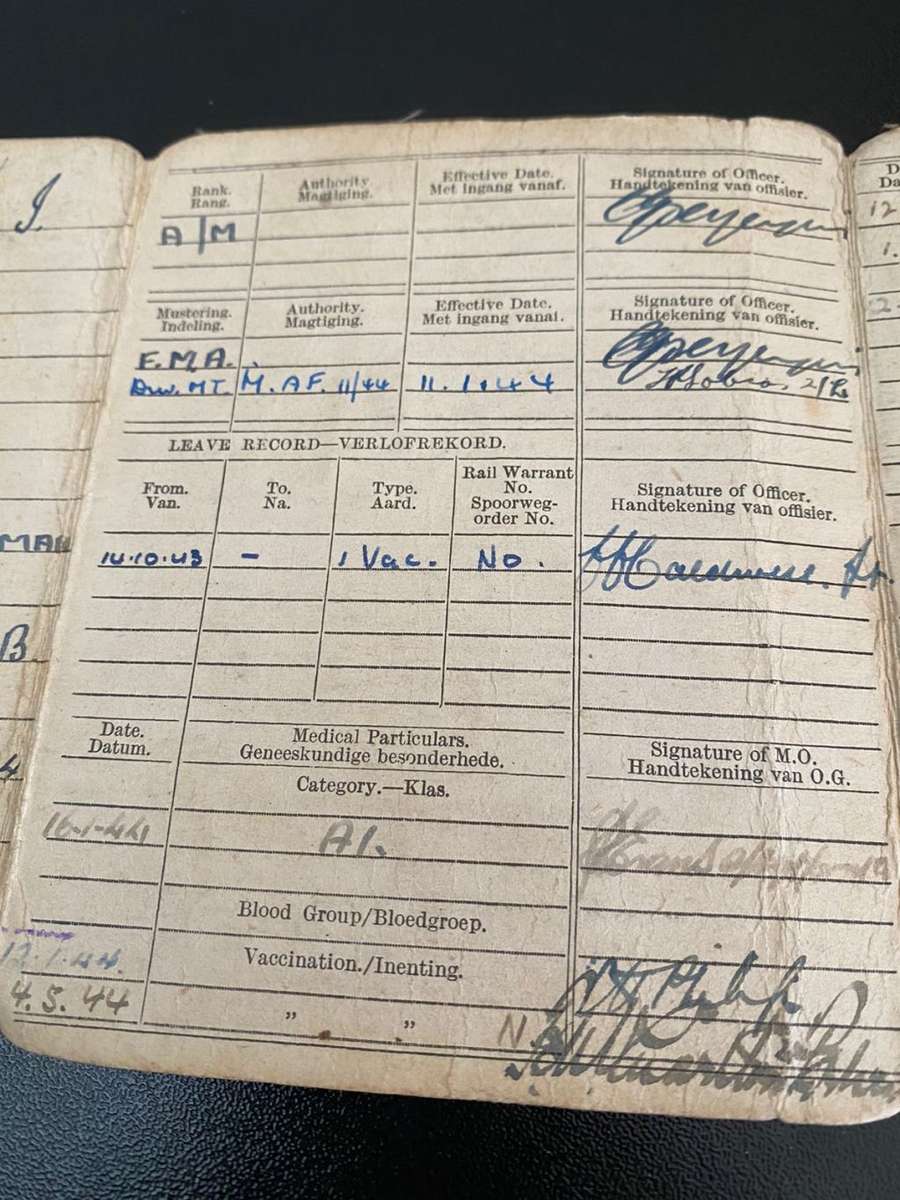 I.
Rank. Authority Effective Date. Signature of Officer.
Rang. Magtiging. Met ingang vanaf. Handtekening van offisier.
A/M
Mustering. Authority. Effective Date. Signature of Officer.
Indeling. Magtiging. Met ingang vanaf. Handtekening van offisier.
F.M.A.
Dvr. M.T. M.AF. 11/44 11.1.44
LEAVE RECORD—VERLOFREKORD.
From. To. Type. Rail Warrant No. Signature of Officer.
Van. Na. Aard. Spoorweg-order No. Handtekening van offisier.
MAN
14.10.43 - 1 Vac. No.
B
Date. Medical Particulars. Signature of M.O.
Datum. Geneeskundige besonderhede. Handtekening van O.G.
4
Category.—Klas.
16-1-44 A1.
Blood Group/Bloedgroep.
Vaccination./Inenting.
4.5.44 " "
D
Da
12
1.